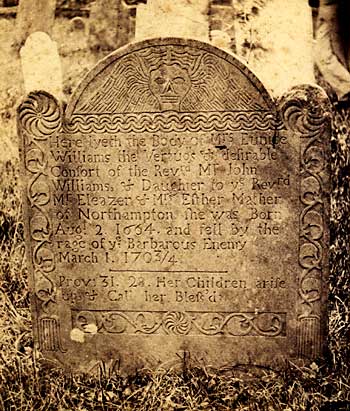 Here lyeth the Body of Mrs Eunice
Williams the Vertuos & desirable
Consort of the Revrd Mr John
Williams, & Daughter to ye Revrd
Mr Eleazer & Mrs Esther Mather
of Northampton she was Born
Augt 2 1664. and fell by the
rage of ye Barbarous Enemy
March 1. 1703/4
Prov: 31. 28. Her Children arise
up & Call her Bless'd